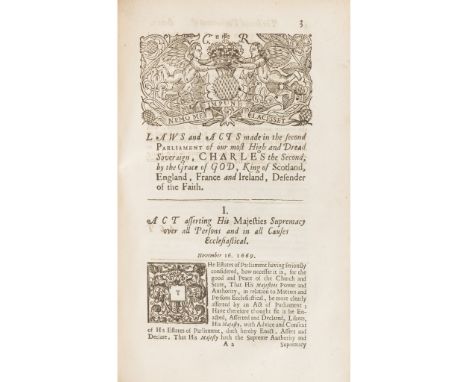 3
C R
NEMO ME IMPUNE LACESSET
LAWS and ACTS made in the second
PARLIAMENT of our most High and Dread
Soveraign, CHARLES the Second;
by the Grace of GOD, King of Scotland,
England, France and Ireland, Defender
of the Faith.
I.
ACT asserting His Majesties Supremacy
over all Persons and in all Causes
Ecclesiastical.
November 16. 1669.
THe Estates of Parliament having seriously
considered, how necessar it is, for the
good and Peace of the Church and
State, That His Majesties Power and
Authority, in relation to Matters and
Persons Ecclesiastical, be more clearly
asserted by an Act of Parliament;
Have therefore thought fit it be En-
acted, Asserted and Declared, Likeas,
His Majesty, with Advice and Consent
of His Estates of Parliament, doth hereby Enact, Assert and
Declare, That His Majesty hath the Supreme Authority and
A 2 Supremacy